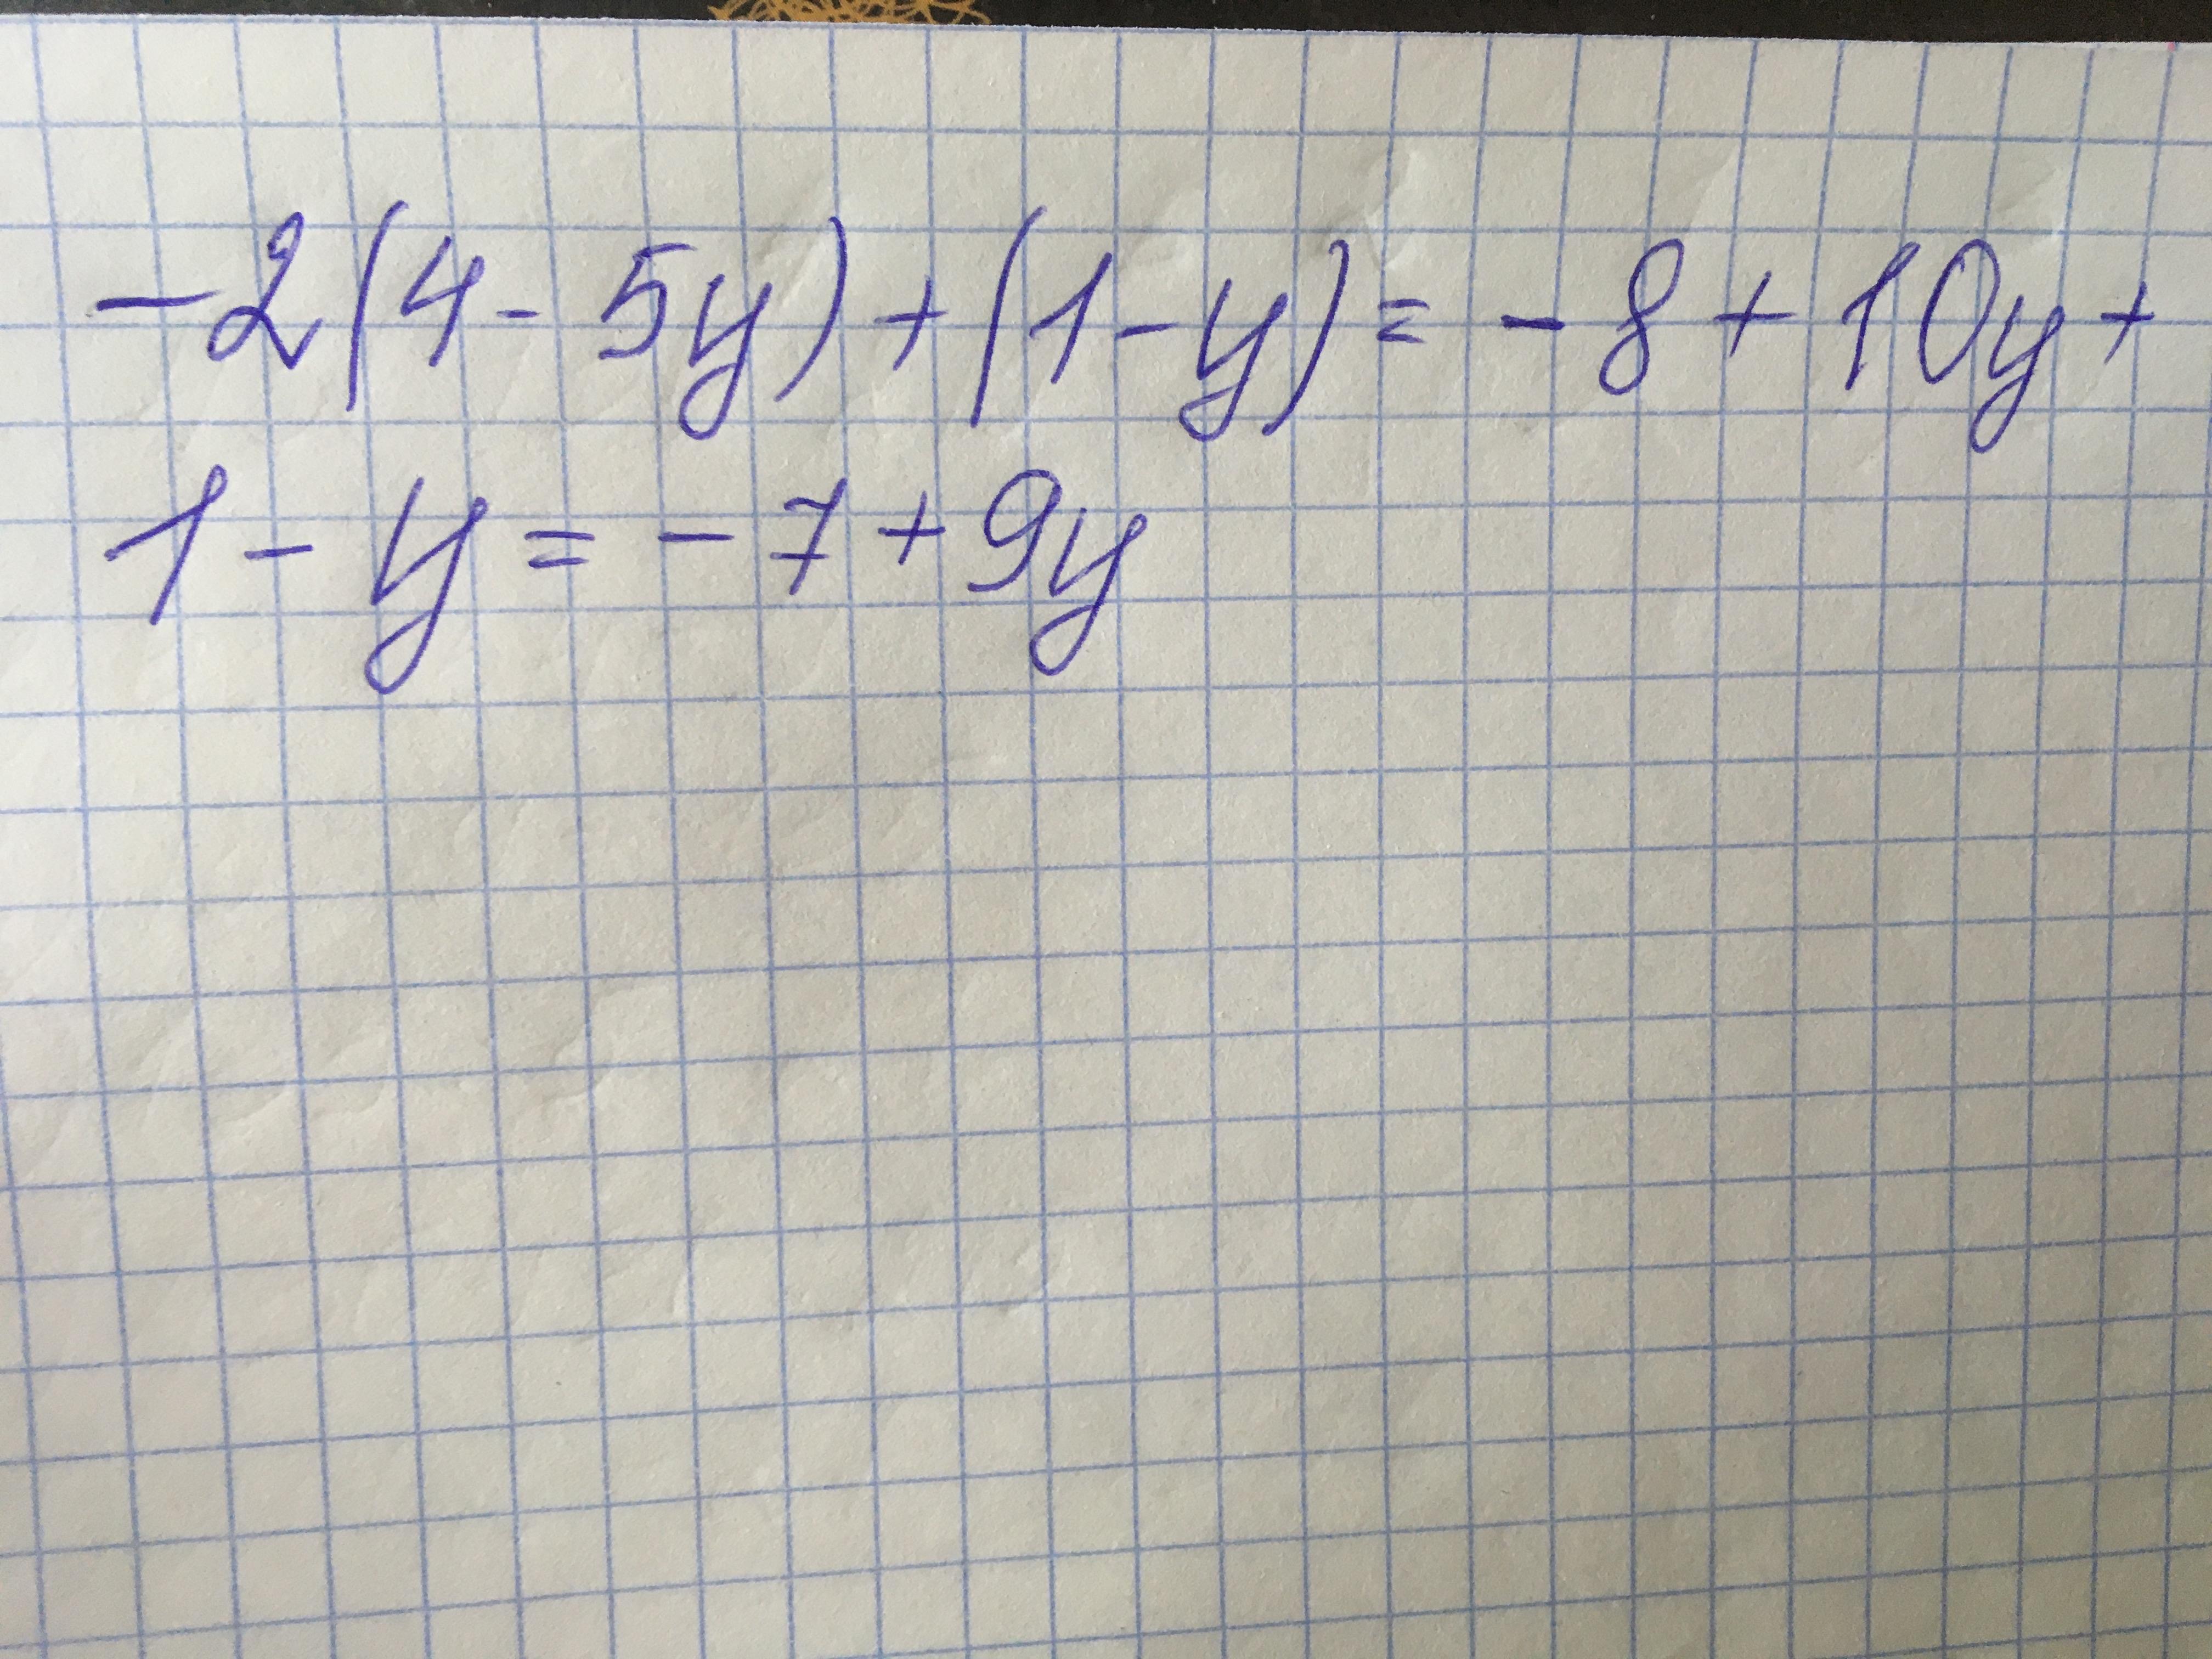 -2(4-5y)+(1-y)=-8+10y+
1-y=-7+9y